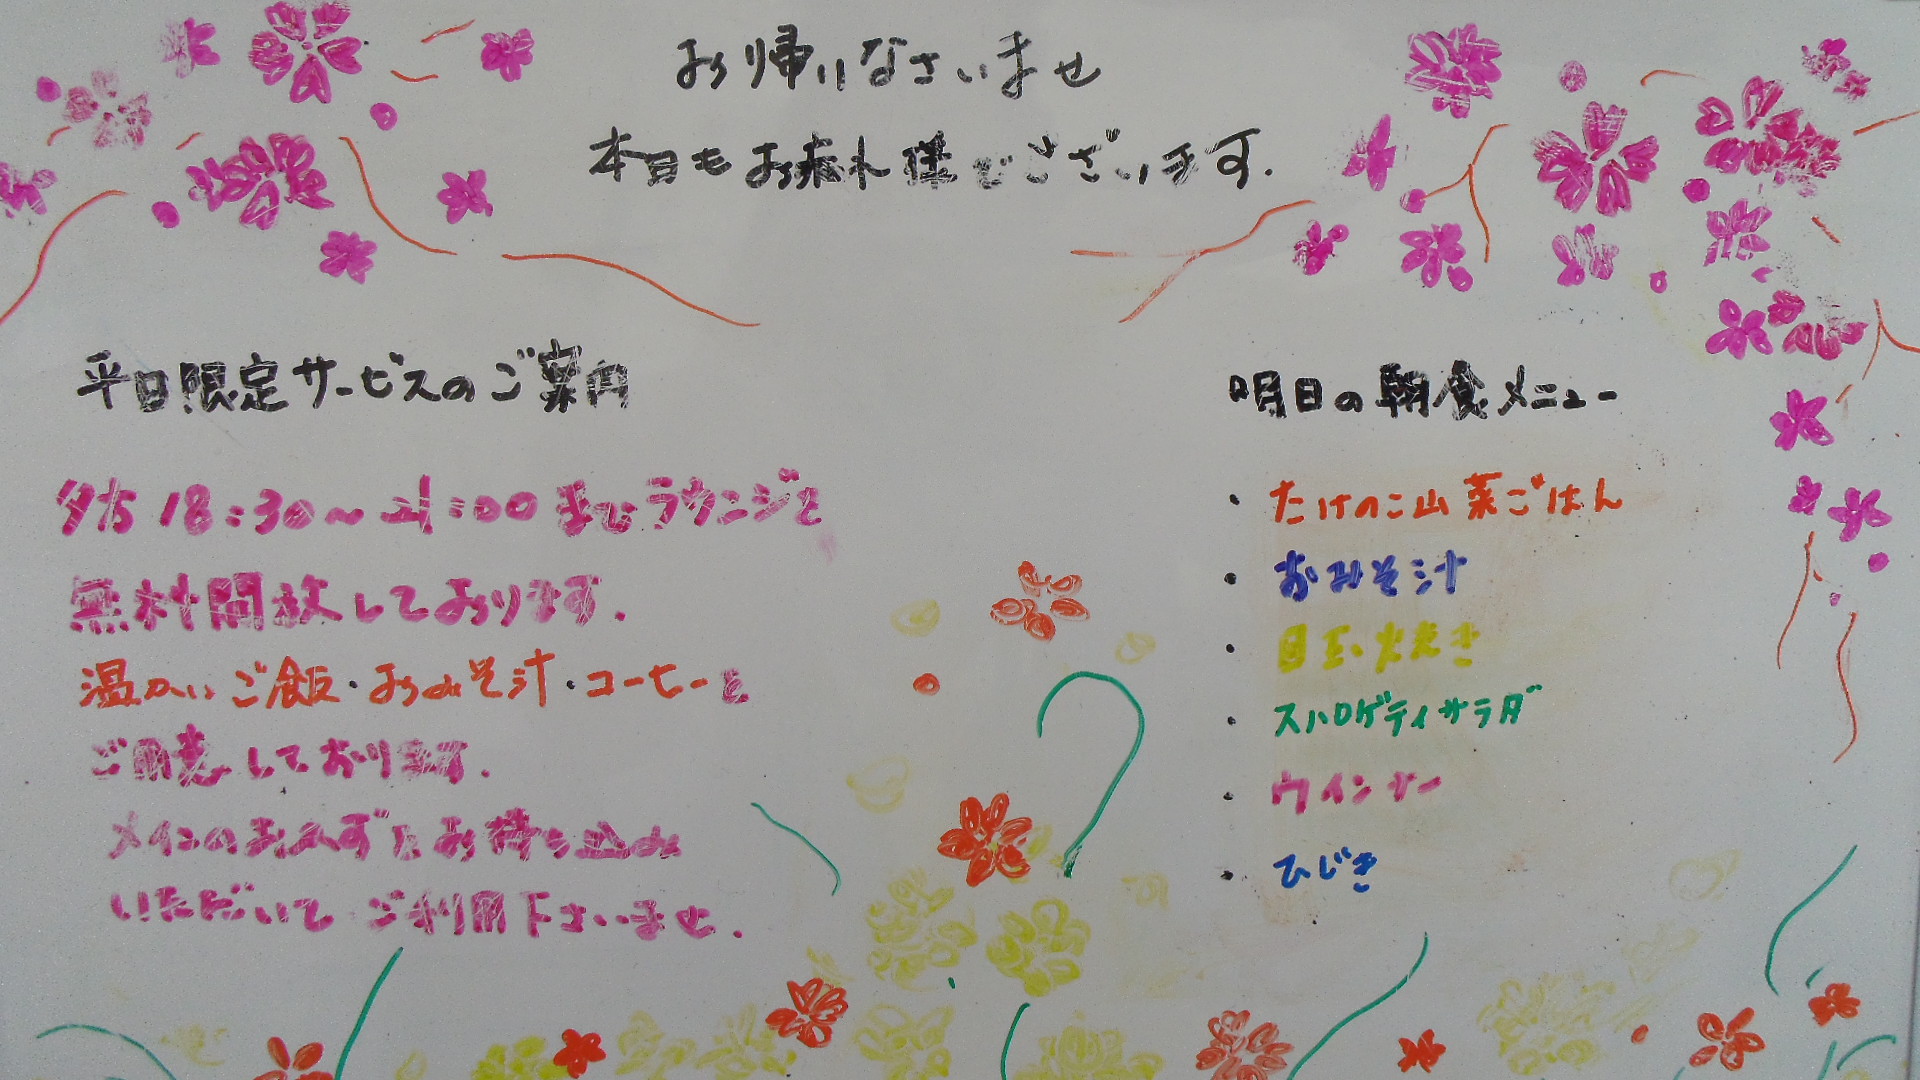 お帰りなさいませ
本日もお疲れ様でございます.
平日限定サービスのご案内
夕方 18:30〜21:00までラウンジを
無料開放しております.
温かいご飯・おみそ汁・コーヒーを
ご用意しております.
メインのおかずをお持ち込み
いただいてご利用下さいませ.
明日の朝食メニュー
・たけのこ山菜ごはん
・おみそ汁
・目玉焼き
・スパロゲティサラダ
・ウインナー
・ひじき